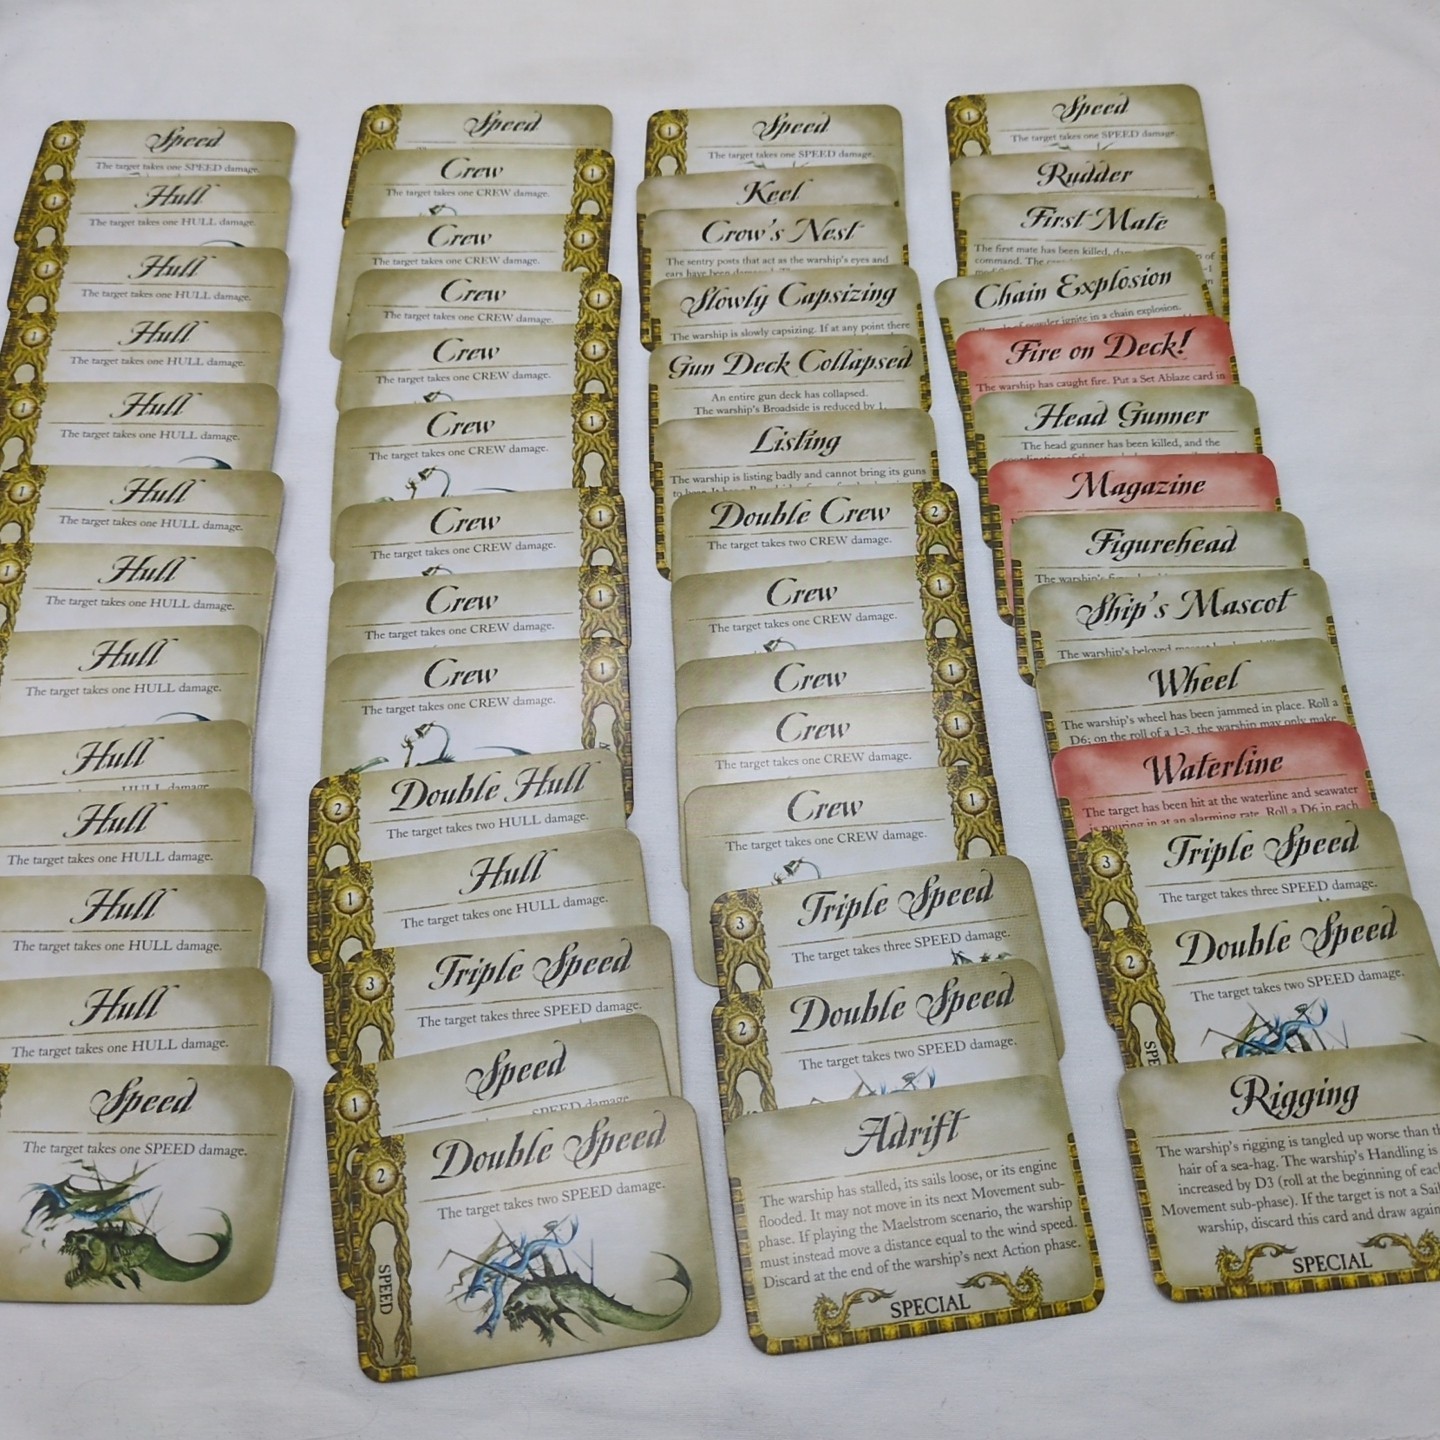 1
Speed
The target takes one SPEED damage.
1
Hull
The target takes one HULL damage.
1
Hull
The target takes one HULL damage.
1
Hull
The target takes one HULL damage.
1
Hull
The target takes one HULL damage.
1
Hull
The target takes one HULL damage.
1
Hull
The target takes one HULL damage.
Hull
The target takes one HULL damage.
Hull
HULL damage.
Hull
The target takes one HULL damage.
Hull
The target takes one HULL damage.
Hull
The target takes one HULL damage.
Speed
The target takes one SPEED damage.
1
Speed
Crew
1
The target takes one CREW damage.
Crew
1
The target takes one CREW damage.
Crew
1
The target takes one CREW damage.
Crew
1
The target takes one CREW damage.
Crew
1
The target takes one CREW damage.
Crew
1
The target takes one CREW damage.
Crew
1
The target takes one CREW damage.
Crew
1
The target takes one CREW damage.
2
Double Hull
The target takes two HULL damage.
1
Hull
The target takes one HULL damage.
3
Triple Speed
The target takes three SPEED damage.
1
Speed
SPEED damage.
2
Double Speed
The target takes two SPEED damage.
SPEED
1
Speed
The target takes one SPEED damage.
Keel
Crow's Nest
The sentry posts that act as the warship's eyes and
ears have been
Slowly Capsizing
The warship is slowly capsizing. If at any point there
Gun Deck Collapsed
An entire gun deck has collapsed.
The warship's Broadside is reduced by 1.
Listing
The warship is listing badly and cannot bring its guns
Double Crew
2
The target takes two CREW damage.
Crew
1
The target takes one CREW damage.
Crew
1
The target takes one CREW damage.
Crew
1
The target takes one CREW damage.
Crew
1
The target takes one CREW damage.
3
Triple Speed
The target takes three SPEED damage.
2
Double Speed
The target takes two SPEED damage.
Adrift
The warship has stalled, its sails loose, or its engine
flooded. It may not move in its next Movement sub-
phase. If playing the Maelstrom scenario, the warship
must instead move a distance equal to the wind speed.
Discard at the end of the warship's next Action phase.
SPECIAL
1
Speed
The target takes one SPEED damage.
Rudder
First Mate
The first mate has been killed,
command. The
Chain Explosion
ignite in a chain explosion.
Fire on Deck!
The warship has caught fire. Put a Set Ablaze card in
Head Gunner
The head gunner has been killed, and the
Magazine
Figurehead
The warship's
Ship's Mascot
The warship's beloved
Wheel
The warship's wheel has been jammed in place. Roll a
D6; on the roll of a 1-3, the warship may only make
Waterline
The target has been hit at the waterline and seawater
is pouring in at an alarming rate. Roll a D6 in each
3
Triple Speed
The target takes three SPEED damage.
2
Double Speed
The target takes two SPEED damage.
SPE
Rigging
The warship's rigging is tangled up worse than th
hair of a sea-hag. The warship's Handling is
increased by D3 (roll at the beginning of each
Movement sub-phase). If the target is not a Sail
warship, discard this card and draw again
SPECIAL